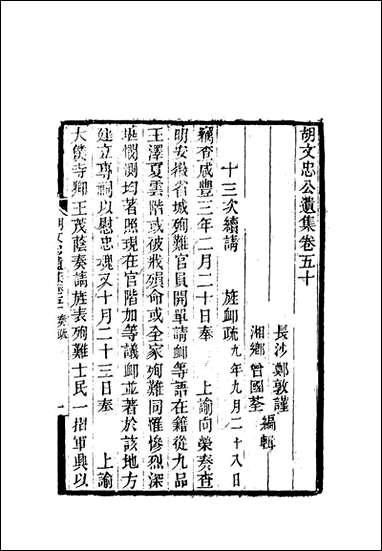 胡文忠公遺集卷五十
長沙鄭敦謹
湘鄉曾國荃
編輯
十三次續請　旌卹疏九年九月二十八日
竊查咸豐三年二月二十日奉　上諭向榮奏查
明安徽省城殉難官員開單請卹等語在籍從九品
王澤夏雲階或被戕殞命或全家殉難同罹慘烈深
堪憫惻均著照現在官階加等議卹並著於該地方
建立專祠以慰忠魂又十月二十三日奉　上諭
大僕寺卿王茂蔭奏請旌表殉難士民一摺軍興以
胡文忠公遺集卷五十　奏疏　一